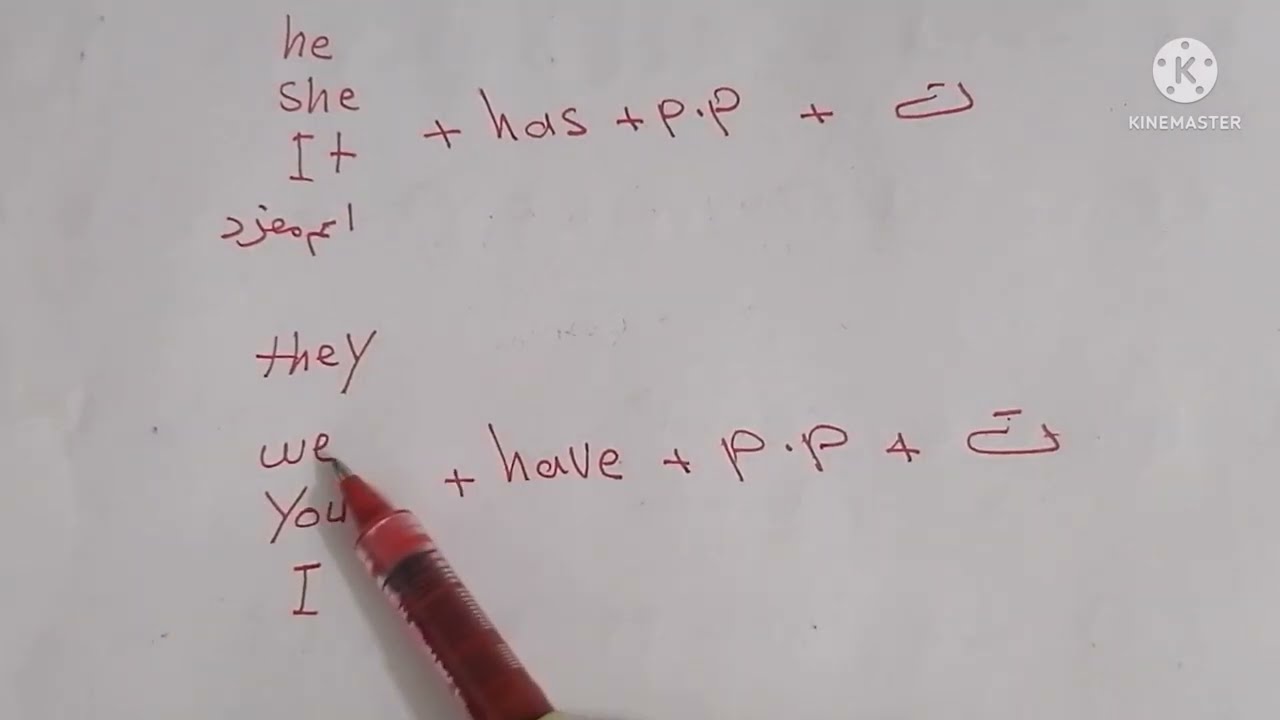 he
she
It
اسم مفرد
+ has + p.p + ت
they
we
You
I
+ have + p.p + ت
KINEMASTER